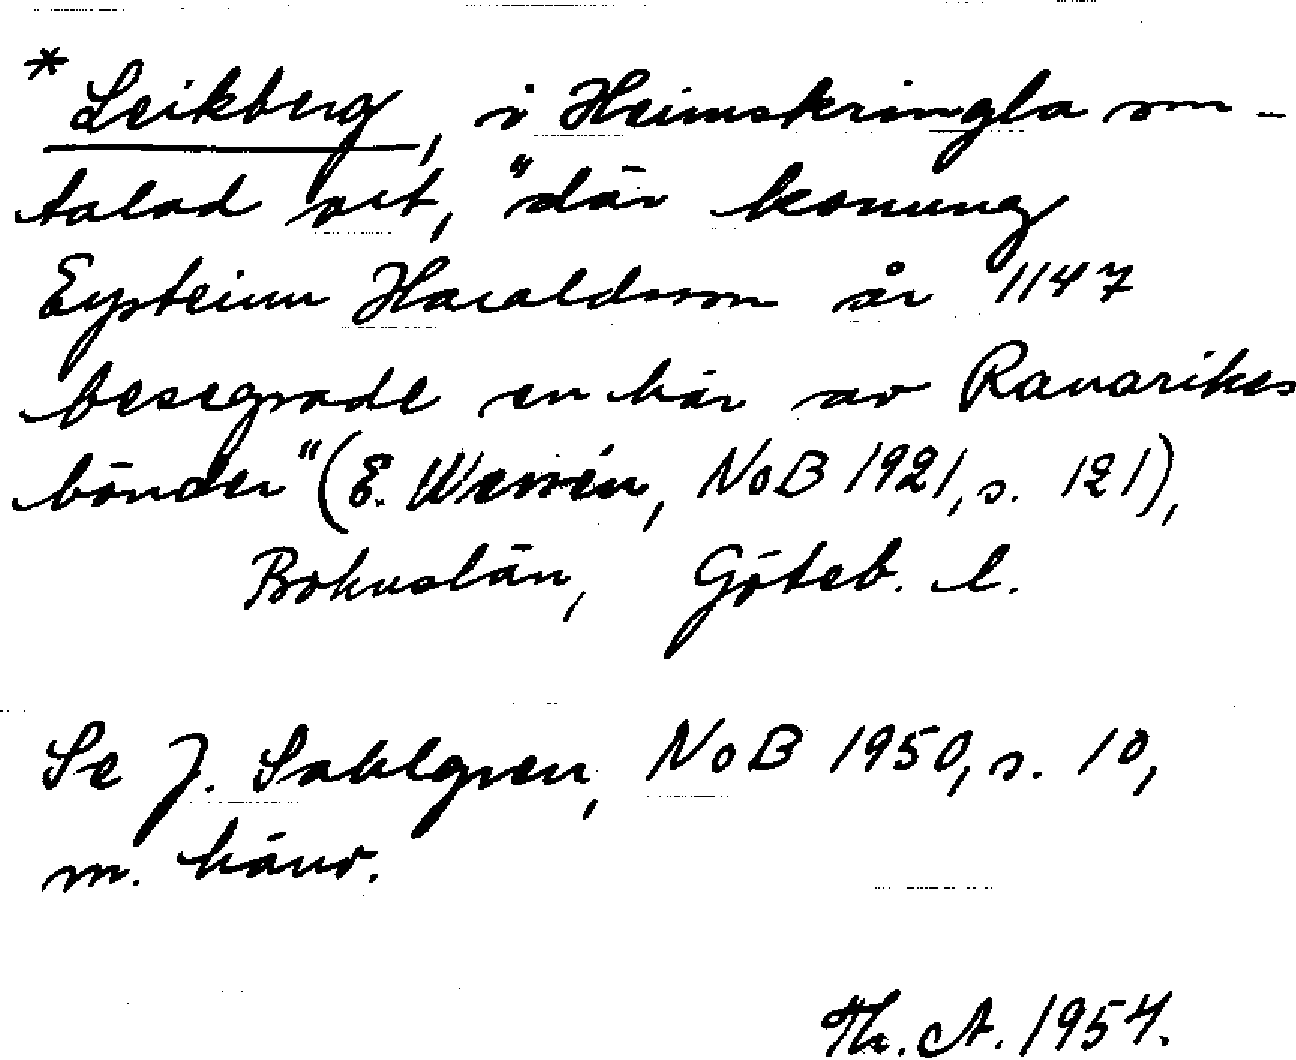 * Leikberg, i Heimskringla om-
talad ort, "där konung
Eysteinn Haraldsson år 1147
besegrade en här av Ranarikes
bönder" (E. Wessén, NoB 1921, s. 121),
Bohuslän, Göteb. l.
Se J. Sahlgren, NoB 1950, s. 10,
m. hänv.
Th. A. 1954.